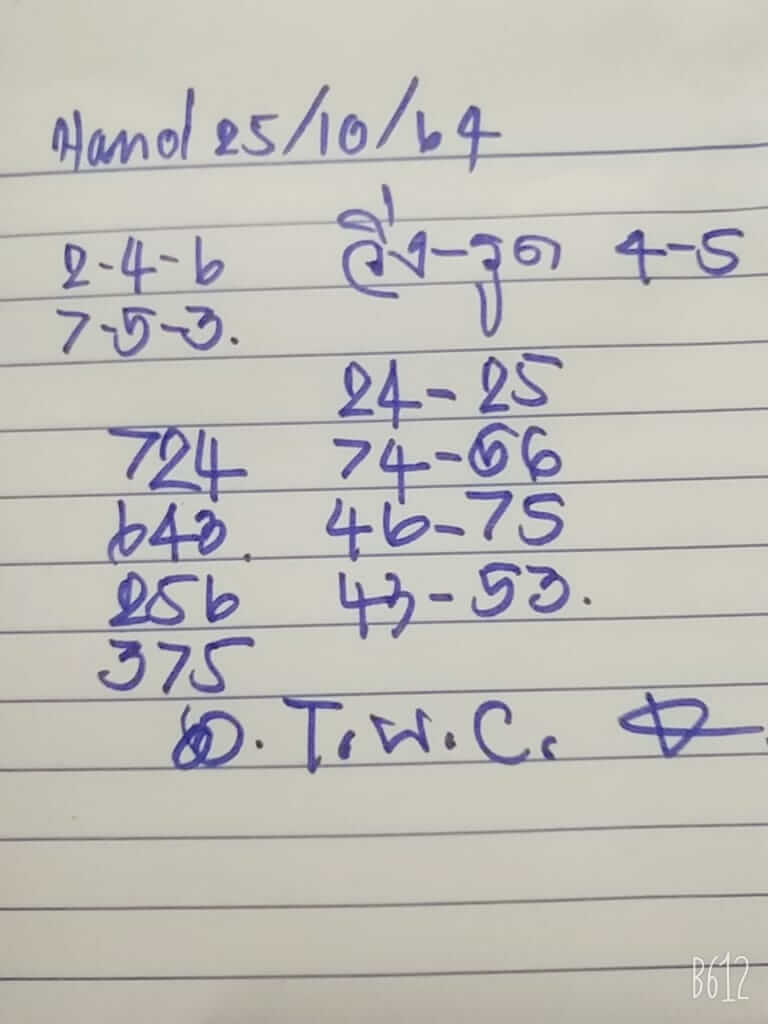 Hanoi 25/10/64
2-4-6 วิ่ง-รูด 4-5
7-5-3.
24-25
724 74-56
643. 46-75
256 43-53.
375
T.W.C.
B612